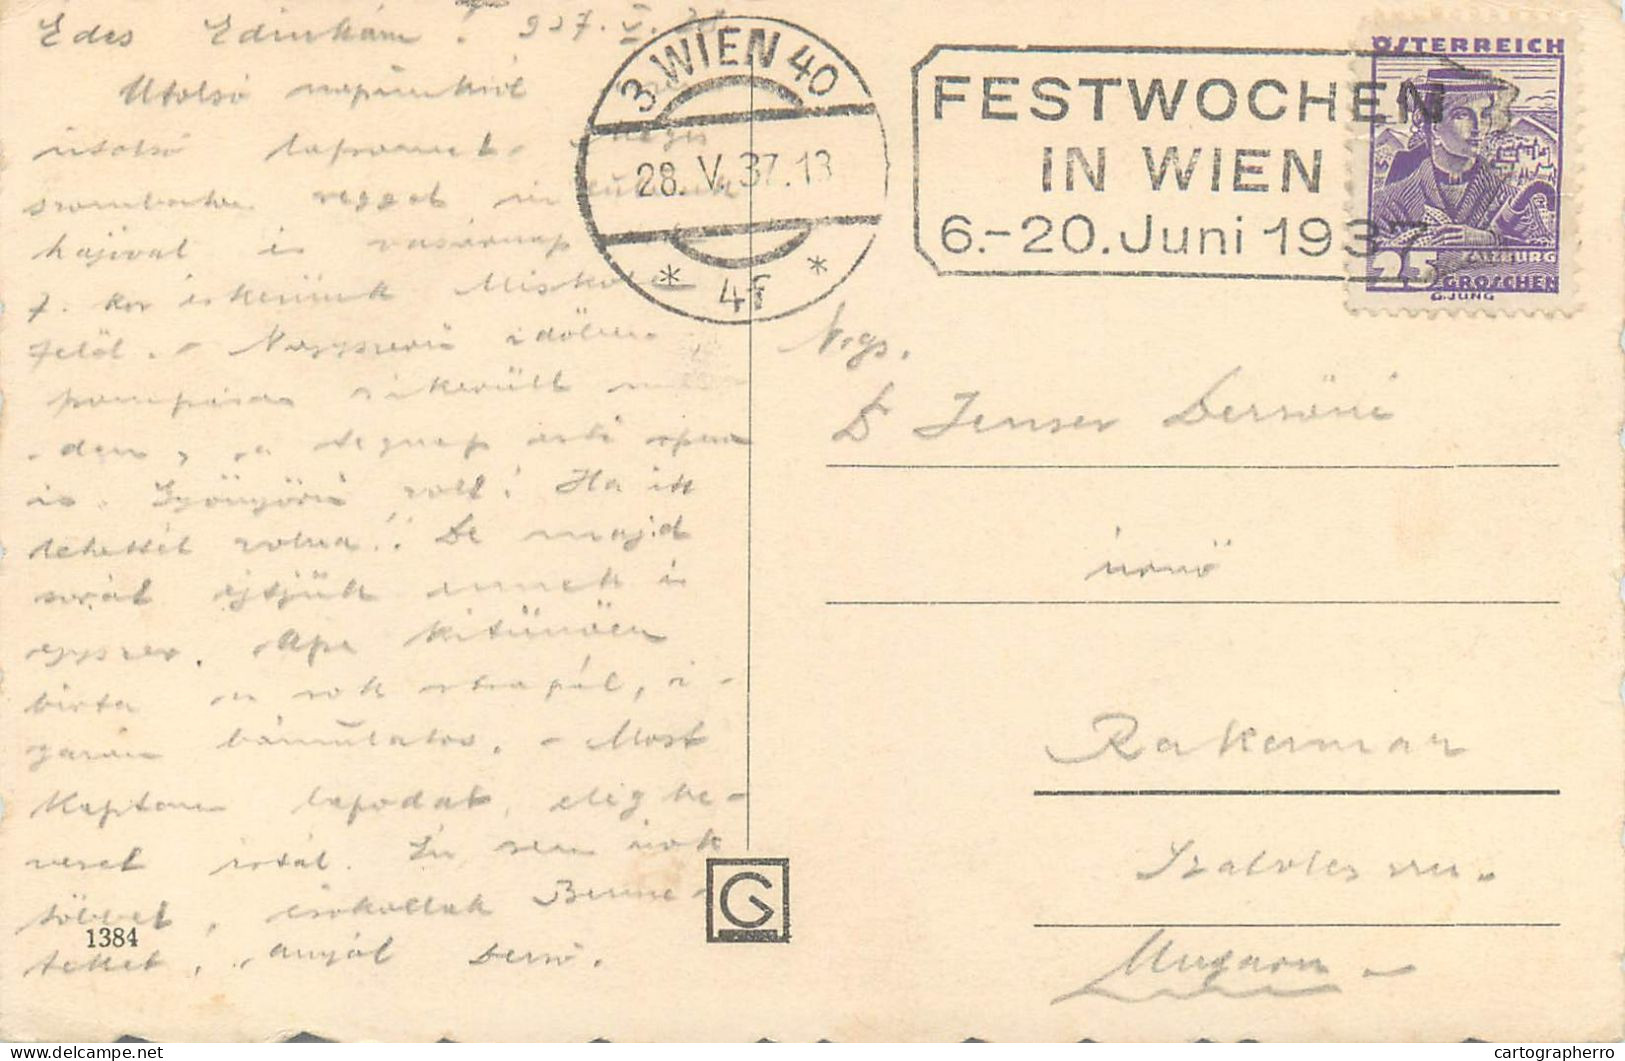 Édes Edinkám! 937. V. 28.
Utolsó napunkról
utolsó lapomat.
szombaton reggel indulunk
hajóval és vasárnap
7. kor érkezünk Miskolc
felől. - Nagyszerű időben
pompásan sikerült min-
den, a tegnap esti opera
is. Gyönyörű volt! Ha itt
lehettél volna! De majd
sorát ejtjük ennek is
egyszer. Apa kitünően
birta a sok strapát, i-
gazán bámulatos. - Most
kaptam lapodat, elég ke-
veset irtál. Én sem irok
többet, csókollak Benne-
teket, anyád Dezső.
1384
3 WIEN 40
28. V. 37. 13
* 4f *
FESTWOCHEN
IN WIEN
6.-20. Juni 1937
ÖSTERREICH
25 SALZBURG
GROSCHEN
G. JUNG
Ngs.
Dr Jenser Dezsőné
úrnő
Rakamaz
Szabolcs vm.
Ungarn
G
www.delcampe.net
cartographerro